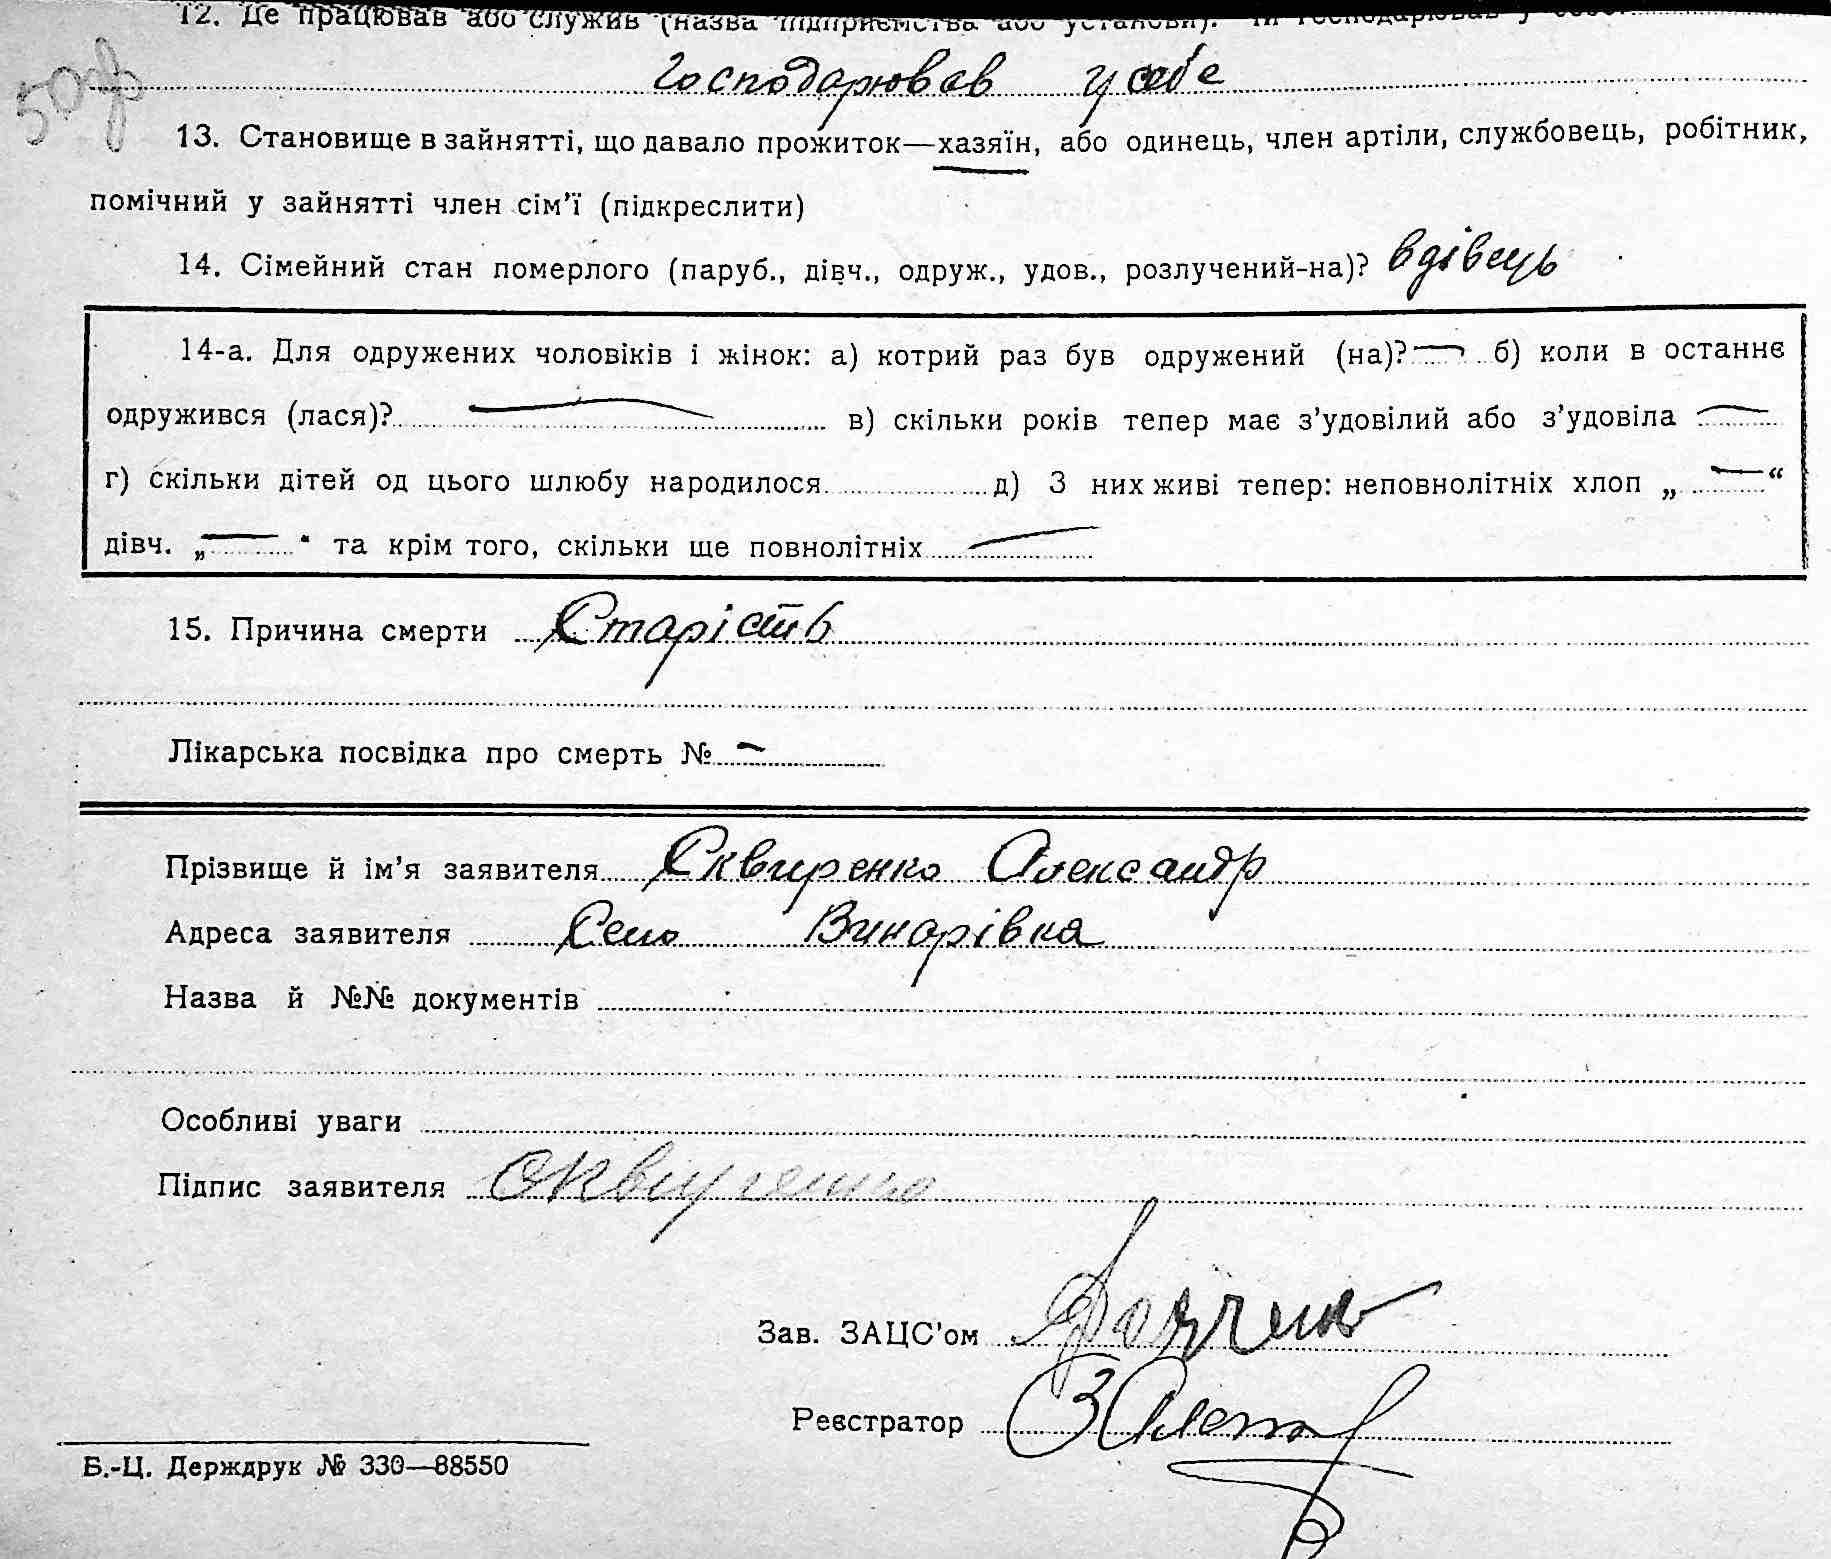 12. Де працював або служив (назва підприємства або установи). Чи господарював у себе
господарював у себе
13. Становище в зайнятті, що давало прожиток—хазяїн, або одинець, член артіли, службовець, робітник,
помічний у зайнятті член сім'ї (підкреслити)
14. Сімейний стан померлого (паруб., дівч., одруж., удов., розлучений-на)? вдівець
14-а. Для одружених чоловіків і жінок: а) котрий раз був одружений (на)? — б) коли в останнє
одружився (лася)? — в) скільки років тепер має з'удовілий або з'удовіла —
г) скільки дітей од цього шлюбу народилося д) З них живі тепер: неповнолітніх хлоп „ — “
дівч. „ — “ та крім того, скільки ще повнолітніх —
15. Причина смерти Старість
Лікарська посвідка про смерть № —
Прізвище й ім'я заявителя Сквиренко Олександр
Адреса заявителя Село Винарівка
Назва й №№ документів
Особливі уваги
Підпис заявителя Сквиренко
Зав. ЗАЦС'ом
Реєстратор
Б.-Ц. Держдрук № 330—88550